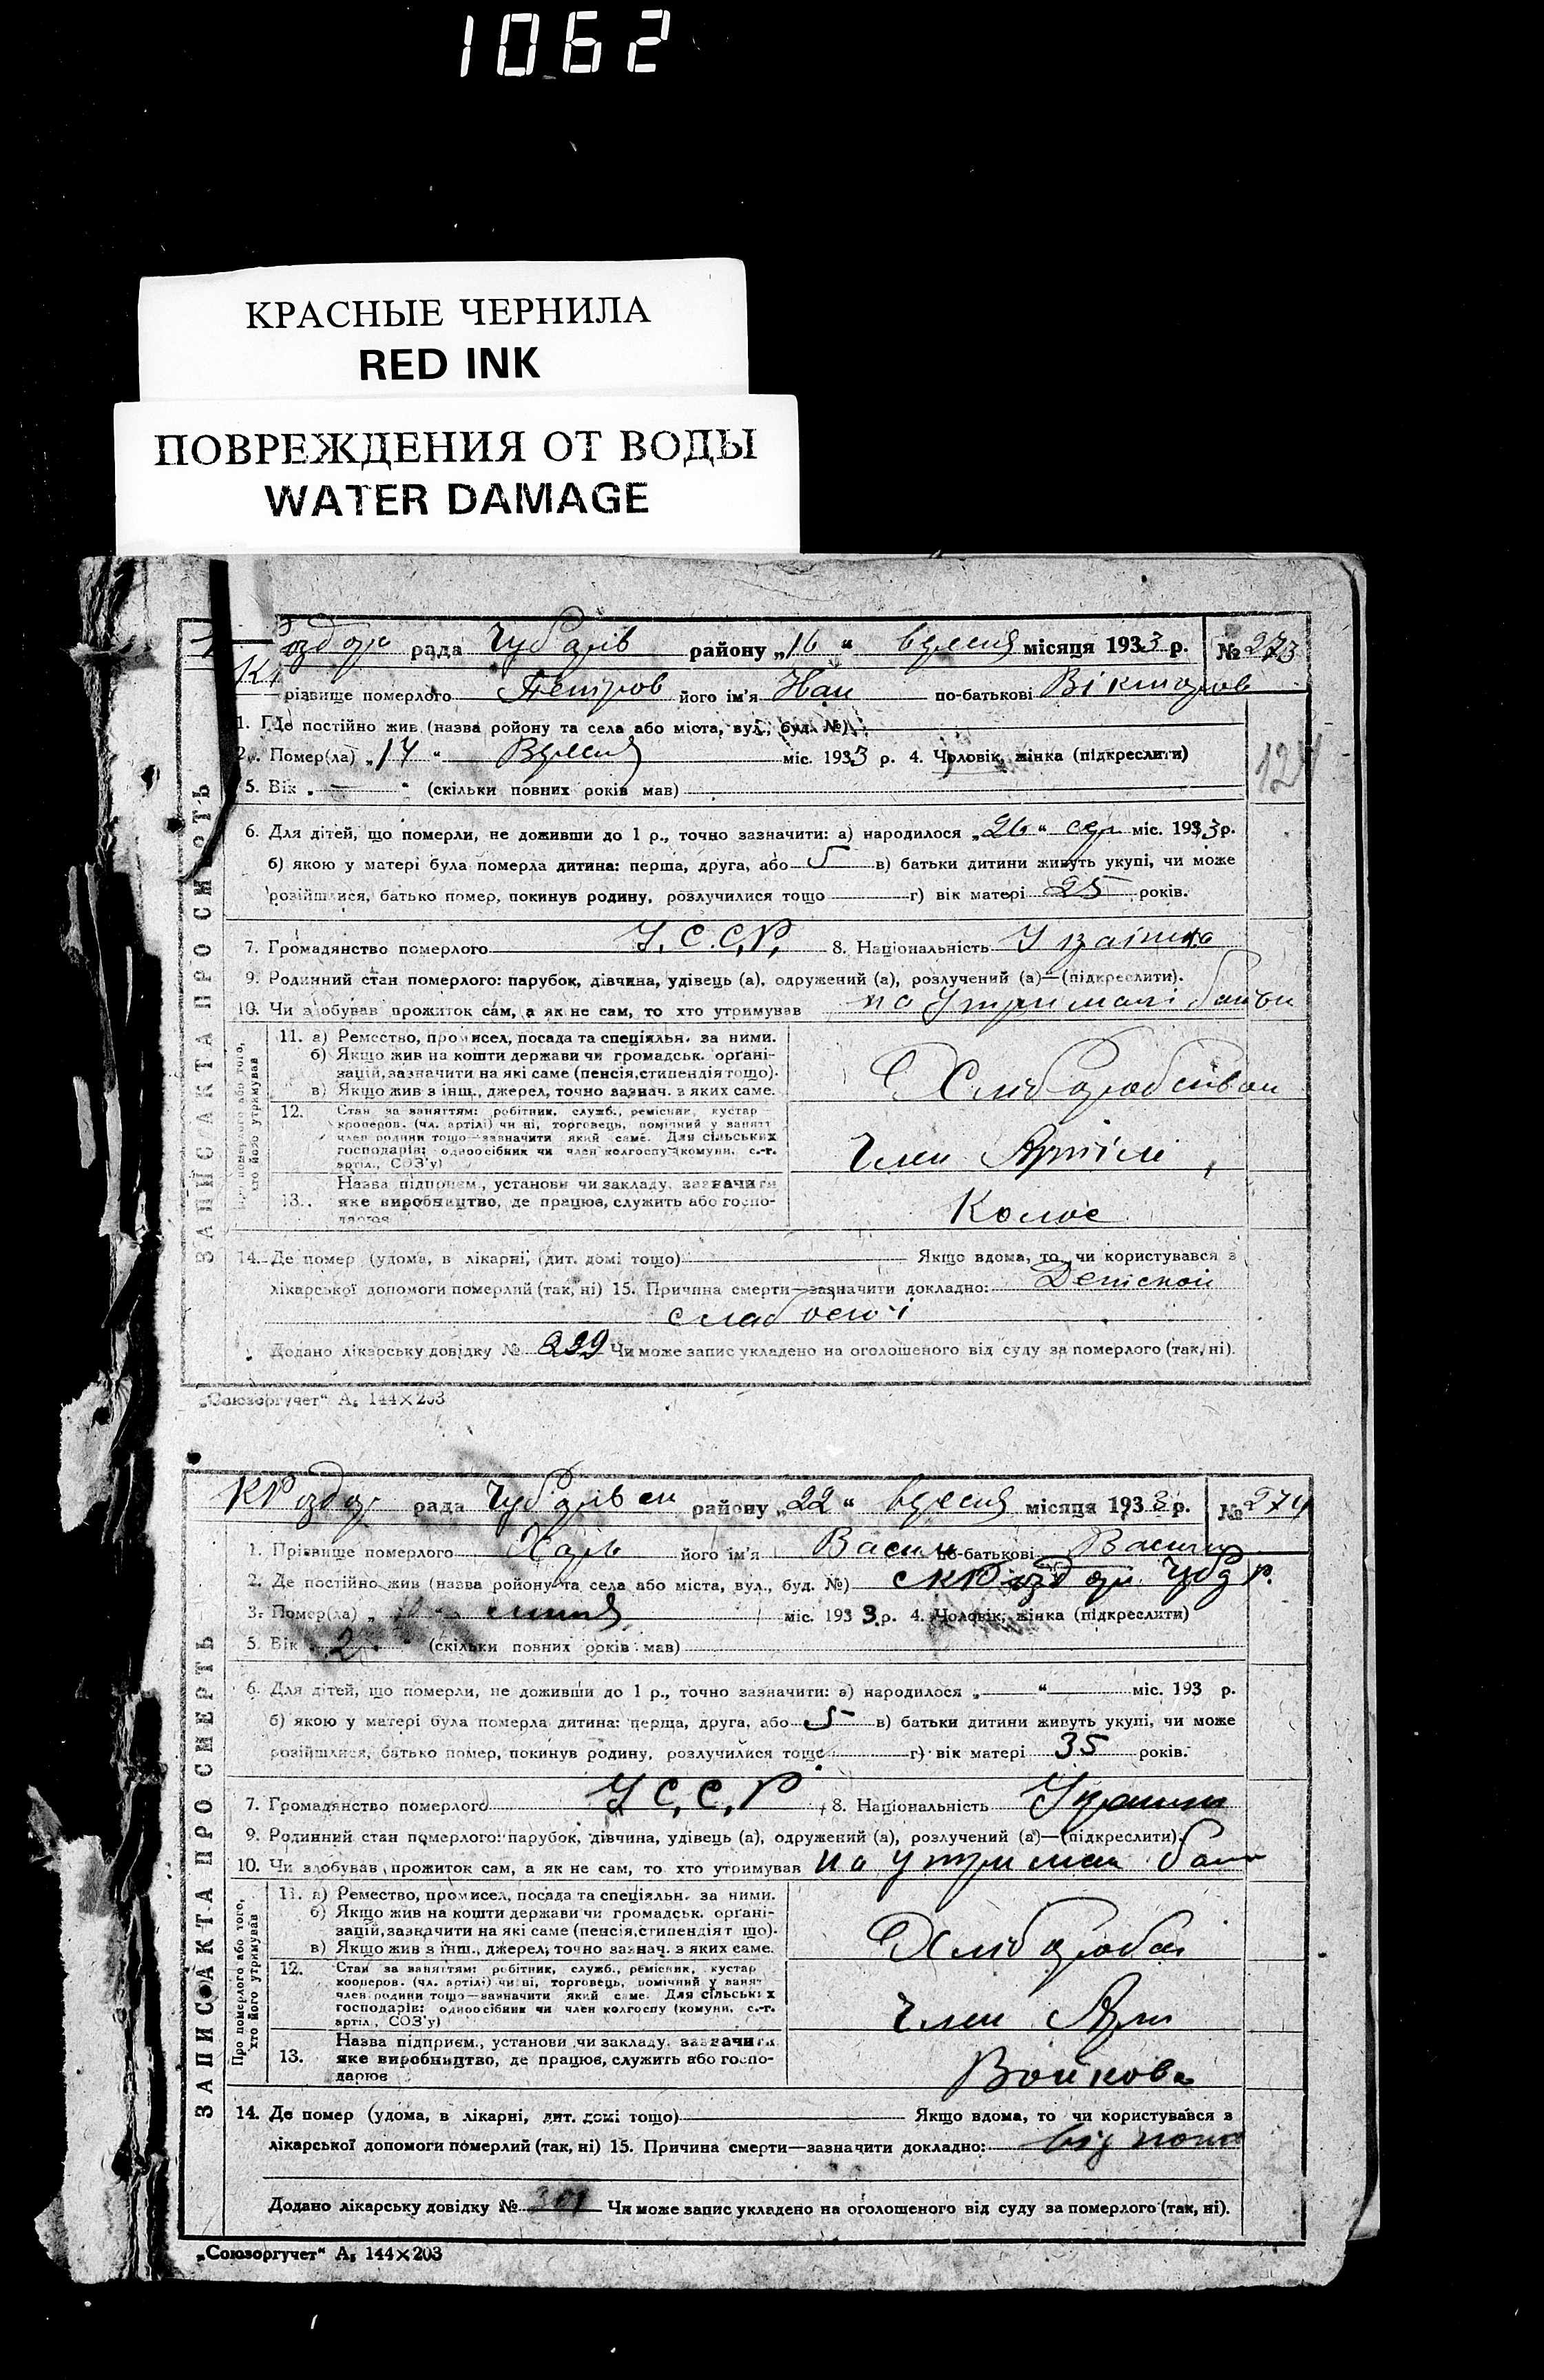 1062
КРАСНЫЕ ЧЕРНИЛА
RED INK
ПОВРЕЖДЕНИЯ ОТ ВОДЫ
WATER DAMAGE
рада Чубарів району „16“ вересня місяця 1933 р. № 273
різвище померлого Петров його ім'я Іван по-батькові Вікторов
1. Де постійно жив (назва ройону та села або міста, вул., буд. №)
Помер(ла) „17“ Вересня міс. 1933 р. 4. Чоловік, жінка (підкреслити)
5. Вік „—“ (скільки повних років мав)
6. Для дітей, що померли, не доживши до 1 р., точно зазначити: а) народилося „26“ міс. 1933 р.
б) якою у матері була померла дитина: перша, друга, або 5 в) батьки дитини живуть укупі, чи може
розійшлися, батько помер, покинув родину, розлучилися тощо г) вік матері 25 років.
7. Громадянство померлого У.С.С.Р. 8. Національність
9. Родинний стан померлого: парубок, дівчина, удівець (а), одружений (а), розлучений (а)—(підкреслити).
10. Чи здобував прожиток сам, а як не сам, то хто утримував на
11. а) Ремество, промисел, посада та спеціяльн. за ними.
б) Якщо жив на кошти держави чи громадськ. орґані-
зацій, зазначити на які саме (пенсія, стипендія тощо).
в) Якщо жив з інш., джерел, точно зазнач. з яких саме.
12. Стан за заняттям: робітник, служб., ремісник, кустар
кооперов. (чл. артілі) чи ні, торговець, помічний у занятт
член родини тощо—зазначити який саме. Для сільських
господарів: одноосібник чи член колгоспу (комуни, с.-г.
артіл., СОЗ'у)
Член Артілі
13. Назва підприєм., установи чи закладу, зазначити
яке виробництво, де працює, служить або госпо-
дарює
Колос
14. Де помер (удома, в лікарні, дит. домі тощо) Якщо вдома, то чи користувався з
лікарської допомоги померлий (так, ні) 15. Причина смерти—зазначити докладно: Детской
слабості
Додано лікарську довідку № 299 Чи може запис укладено на оголошеного від суду за померлого (так, ні).
ЗАПИС АКТА ПРО СМЕРТЬ
„Союзоргучет“ А₅ 144×203
рада району „22“ вересня місяця 1933 р. № 274
1. Прізвище померлого його ім'я Васил по-батькові Васил
2. Де постійно жив (назва ройону та села або міста, вул., буд. №)
3. Помер(ла) міс. 1933 р. 4. Чоловік, жінка (підкреслити)
5. Вік „2“ (скільки повних років мав)
6. Для дітей, що померли, не доживши до 1 р., точно зазначити: а) народилося „—“ міс. 193 р.
б) якою у матері була померла дитина: перша, друга, або 5 в) батьки дитини живуть укупі, чи може
розійшлися, батько помер, покинув родину, розлучилися тощо г) вік матері 35 років.
7. Громадянство померлого У С.С.Р 8. Національність
9. Родинний стан померлого: парубок, дівчина, удівець (а), одружений (а), розлучений (а)—(підкреслити).
10. Чи здобував прожиток сам, а як не сам, то хто утримував на
Про померлого або того, хто його утримував
11. а) Ремество, промисел, посада та спеціяльн. за ними.
б) Якщо жив на кошти держави чи громадськ. орґані-
зацій, зазначити на які саме (пенсія, стипендія т що).
в) Якщо жив з інш., джерел, точно зазнач. з яких саме.
12. Стан за заняттям: робітник, служб., ремісник, кустар
кооперов. (чл. артілі) чи ні, торговець, помічний у занят
член родини тощо—зазначити який саме. Для сільських
господарів: одноосібник чи член колгоспу (комуни, с.-г.
артіл., СОЗ'у)
Член
13. Назва підприєм., установи чи закладу, зазначити
яке виробництво, де працює, служить або госпо-
дарює
Войкова
14. Де помер (удома, в лікарні, дит. домі тощо) Якщо вдома, то чи користувався з
лікарської допомоги померлий (так, ні) 15. Причина смерти—зазначити докладно: від
Додано лікарську довідку № Чи може запис укладено на оголошеного від суду за померлого (так, ні).
ЗАПИС АКТА ПРО СМЕРТЬ
„Союзоргучет“ А₅ 144×203